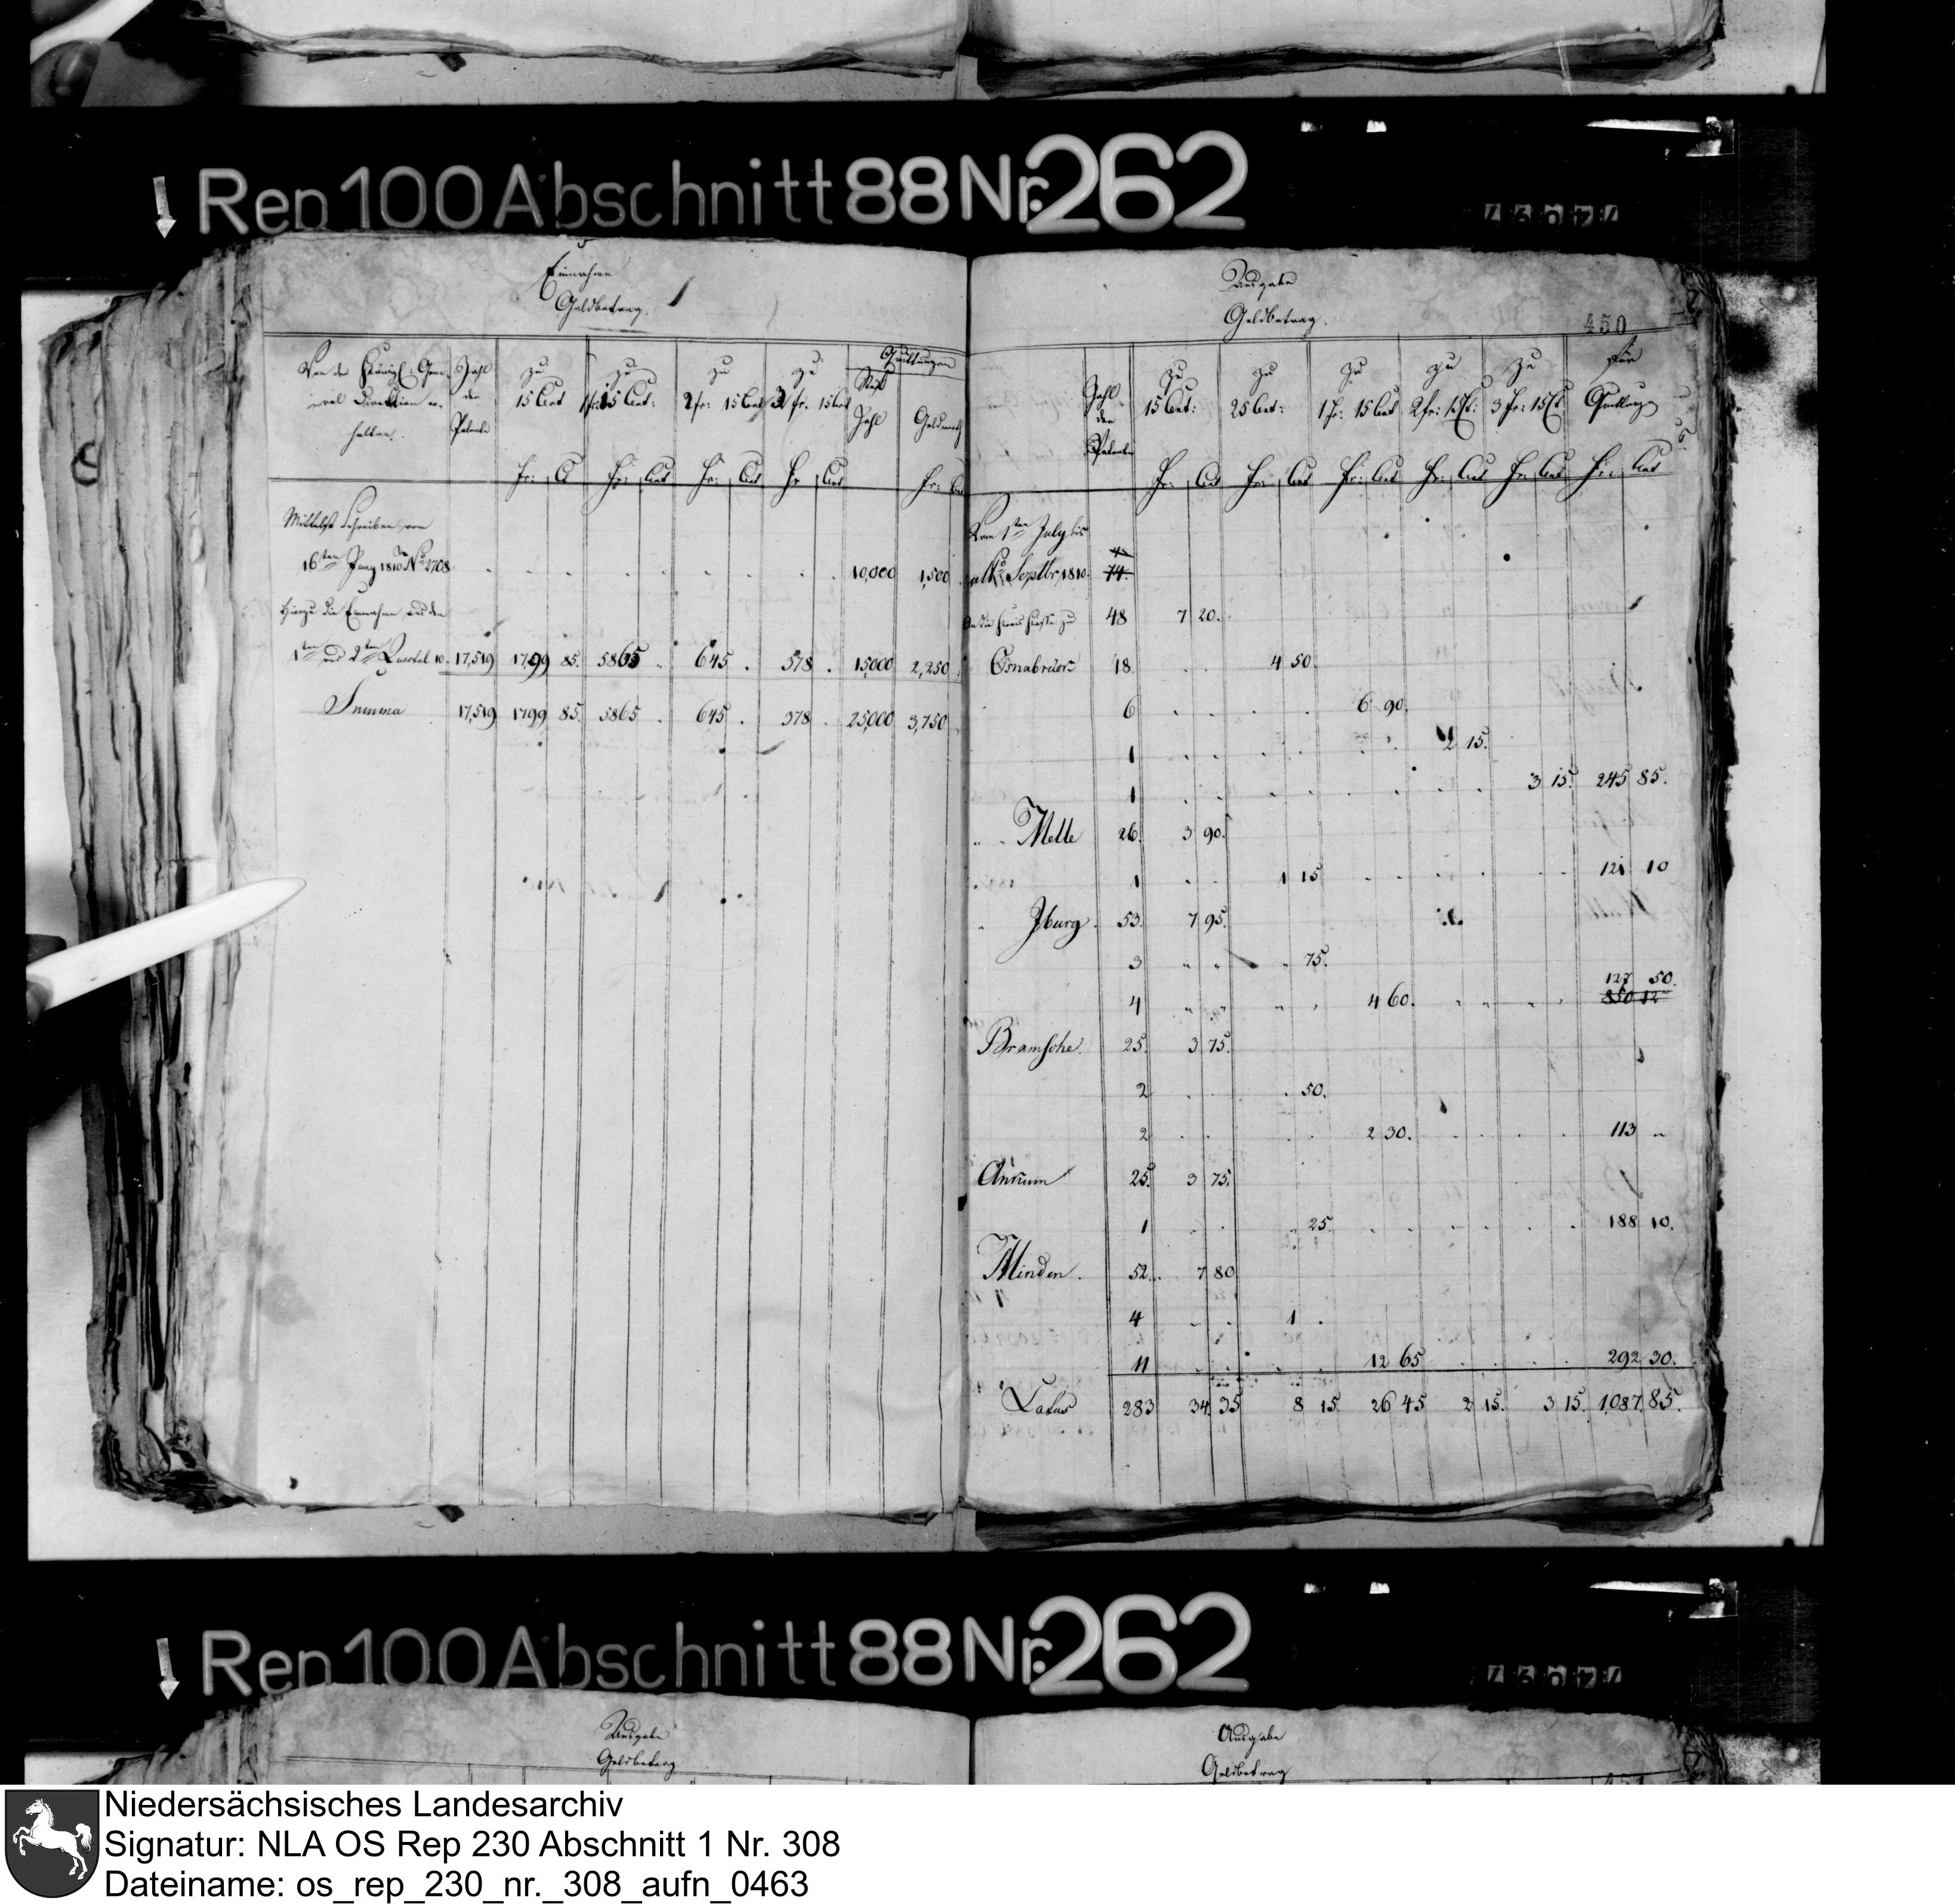 Rep 100 Abschnitt 88 Nr. 262
Einnahme
Geldbetrag.
Von der Königl: Gene-
ral Direktion er-
halten.
Zahl
der
Patente
zu
15 Cent
zu
1 fr: 15 Cent:
zu
2 fr: 15 Cent
zu
3 fr. 15 Cent
Quittungen
Stück
Zahl
Geldwerth
fr: C fr: Cent fr: Cent fr Cent fr: Cent
Mittelst Schreiben vom
16ten Juny 1810 No 2708 10,000 1,500
Hiezu die Einnahme aus dem
1ten und 2ten Quartal 10. 17,519 1799 85. 5865 . 645 . 378 . 15,000 2,250
Summa 17,519 1799 85. 5865 . 645 . 378 . 25,000 3,750
Ausgabe
Geldbetrag.
450
Zahl
der
Patente
zu
15 Cent:
zu
25 Cent:
zu
1 fr: 15 Cent
zu
2 fr: 15 Ct:
zu
3 fr: 15 Ct
für
Quittungen
fr: Cent fr: Cent fr: Cent fr: Cent fr: Cent fr: Cent
Vom 1ten July bis
ulto Septbr 1810.
An die Kreis Kasse zu 48 7 20.
Osnabrück 18 4 50.
6 6 90.
1 2 15.
1 3 15. 245 85.
Melle 26. 3 90.
1 1 15 121 10
Iburg. 53. 7 95.
3 75.
127 50.
4 4 60. 850 12
Bramsche. 25. 3 75.
2 50.
2 2 30. 113 "
Ankum 25. 3 75.
1 25. 188 10.
Minden. 52. 7 80
4 1 .
11 12 65 292 30.
Latus 283 34. 35 8 15. 26 45 2 15. 3 15. 1,087. 85.
Rep 100 Abschnitt 88 Nr. 262
Ausgabe
Geldbetrag
Ausgabe
Geldbetrag
451
Niedersächsisches Landesarchiv
Signatur: NLA OS Rep 230 Abschnitt 1 Nr. 308
Dateiname: os_rep_230_nr._308_aufn_0463